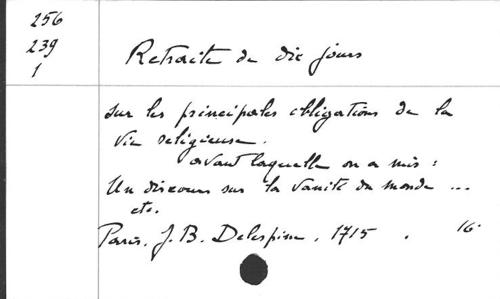 256
239
1
Retraite de dix jours
sur les principales obligations de la
vie religieuse.
avant laquelle on a mis :
Un discours sur la vanité du monde ...
etc.
Paris. J. B. Delespine. 1715 . 16°